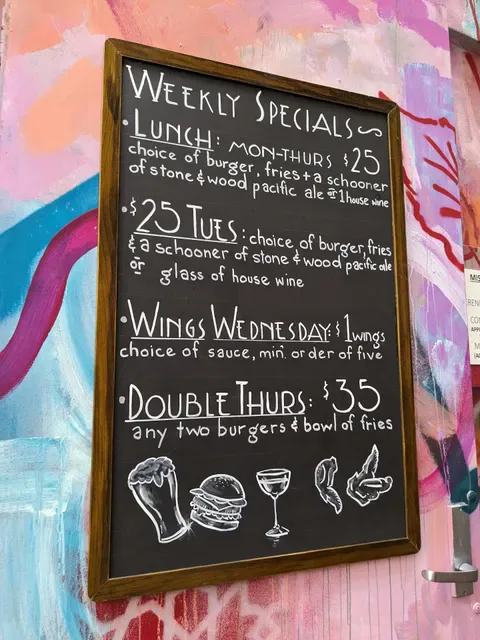 WEEKLY SPECIALS
• LUNCH: MON-THURS $25
choice of burger, fries + a schooner
of stone & wood pacific ale or 1 house wine
• $25 TUES: choice of burger, fries
& a schooner of stone & wood pacific ale
or glass of house wine
• WINGS WEDNESDAY: $1 wings
choice of sauce, min. order of five
• DOUBLE THURS: $35
any two burgers & bowl of fries